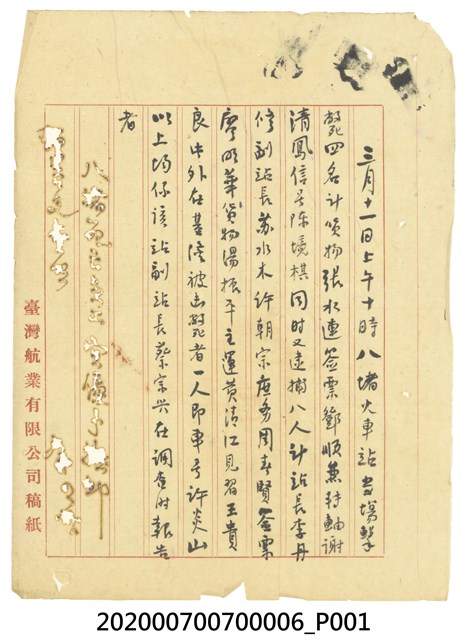 三月十一日上午十時八堵火車站当場擊
斃四名計貨物張水連簽票鄭順兼轉軸謝
清鳳信号陈境棋同時又逮捕八人計站長李丹
修副站長苏水木许朝宗庶务周春賢簽票
廖明華貨物湯振平主運黄清江見習王貴
良中外在基俊被击斃者一人即車号许炎山
以上均係该站副站長蔡宗兴在調查时報告
者
臺灣航業有限公司稿紙
202000700700006_P001